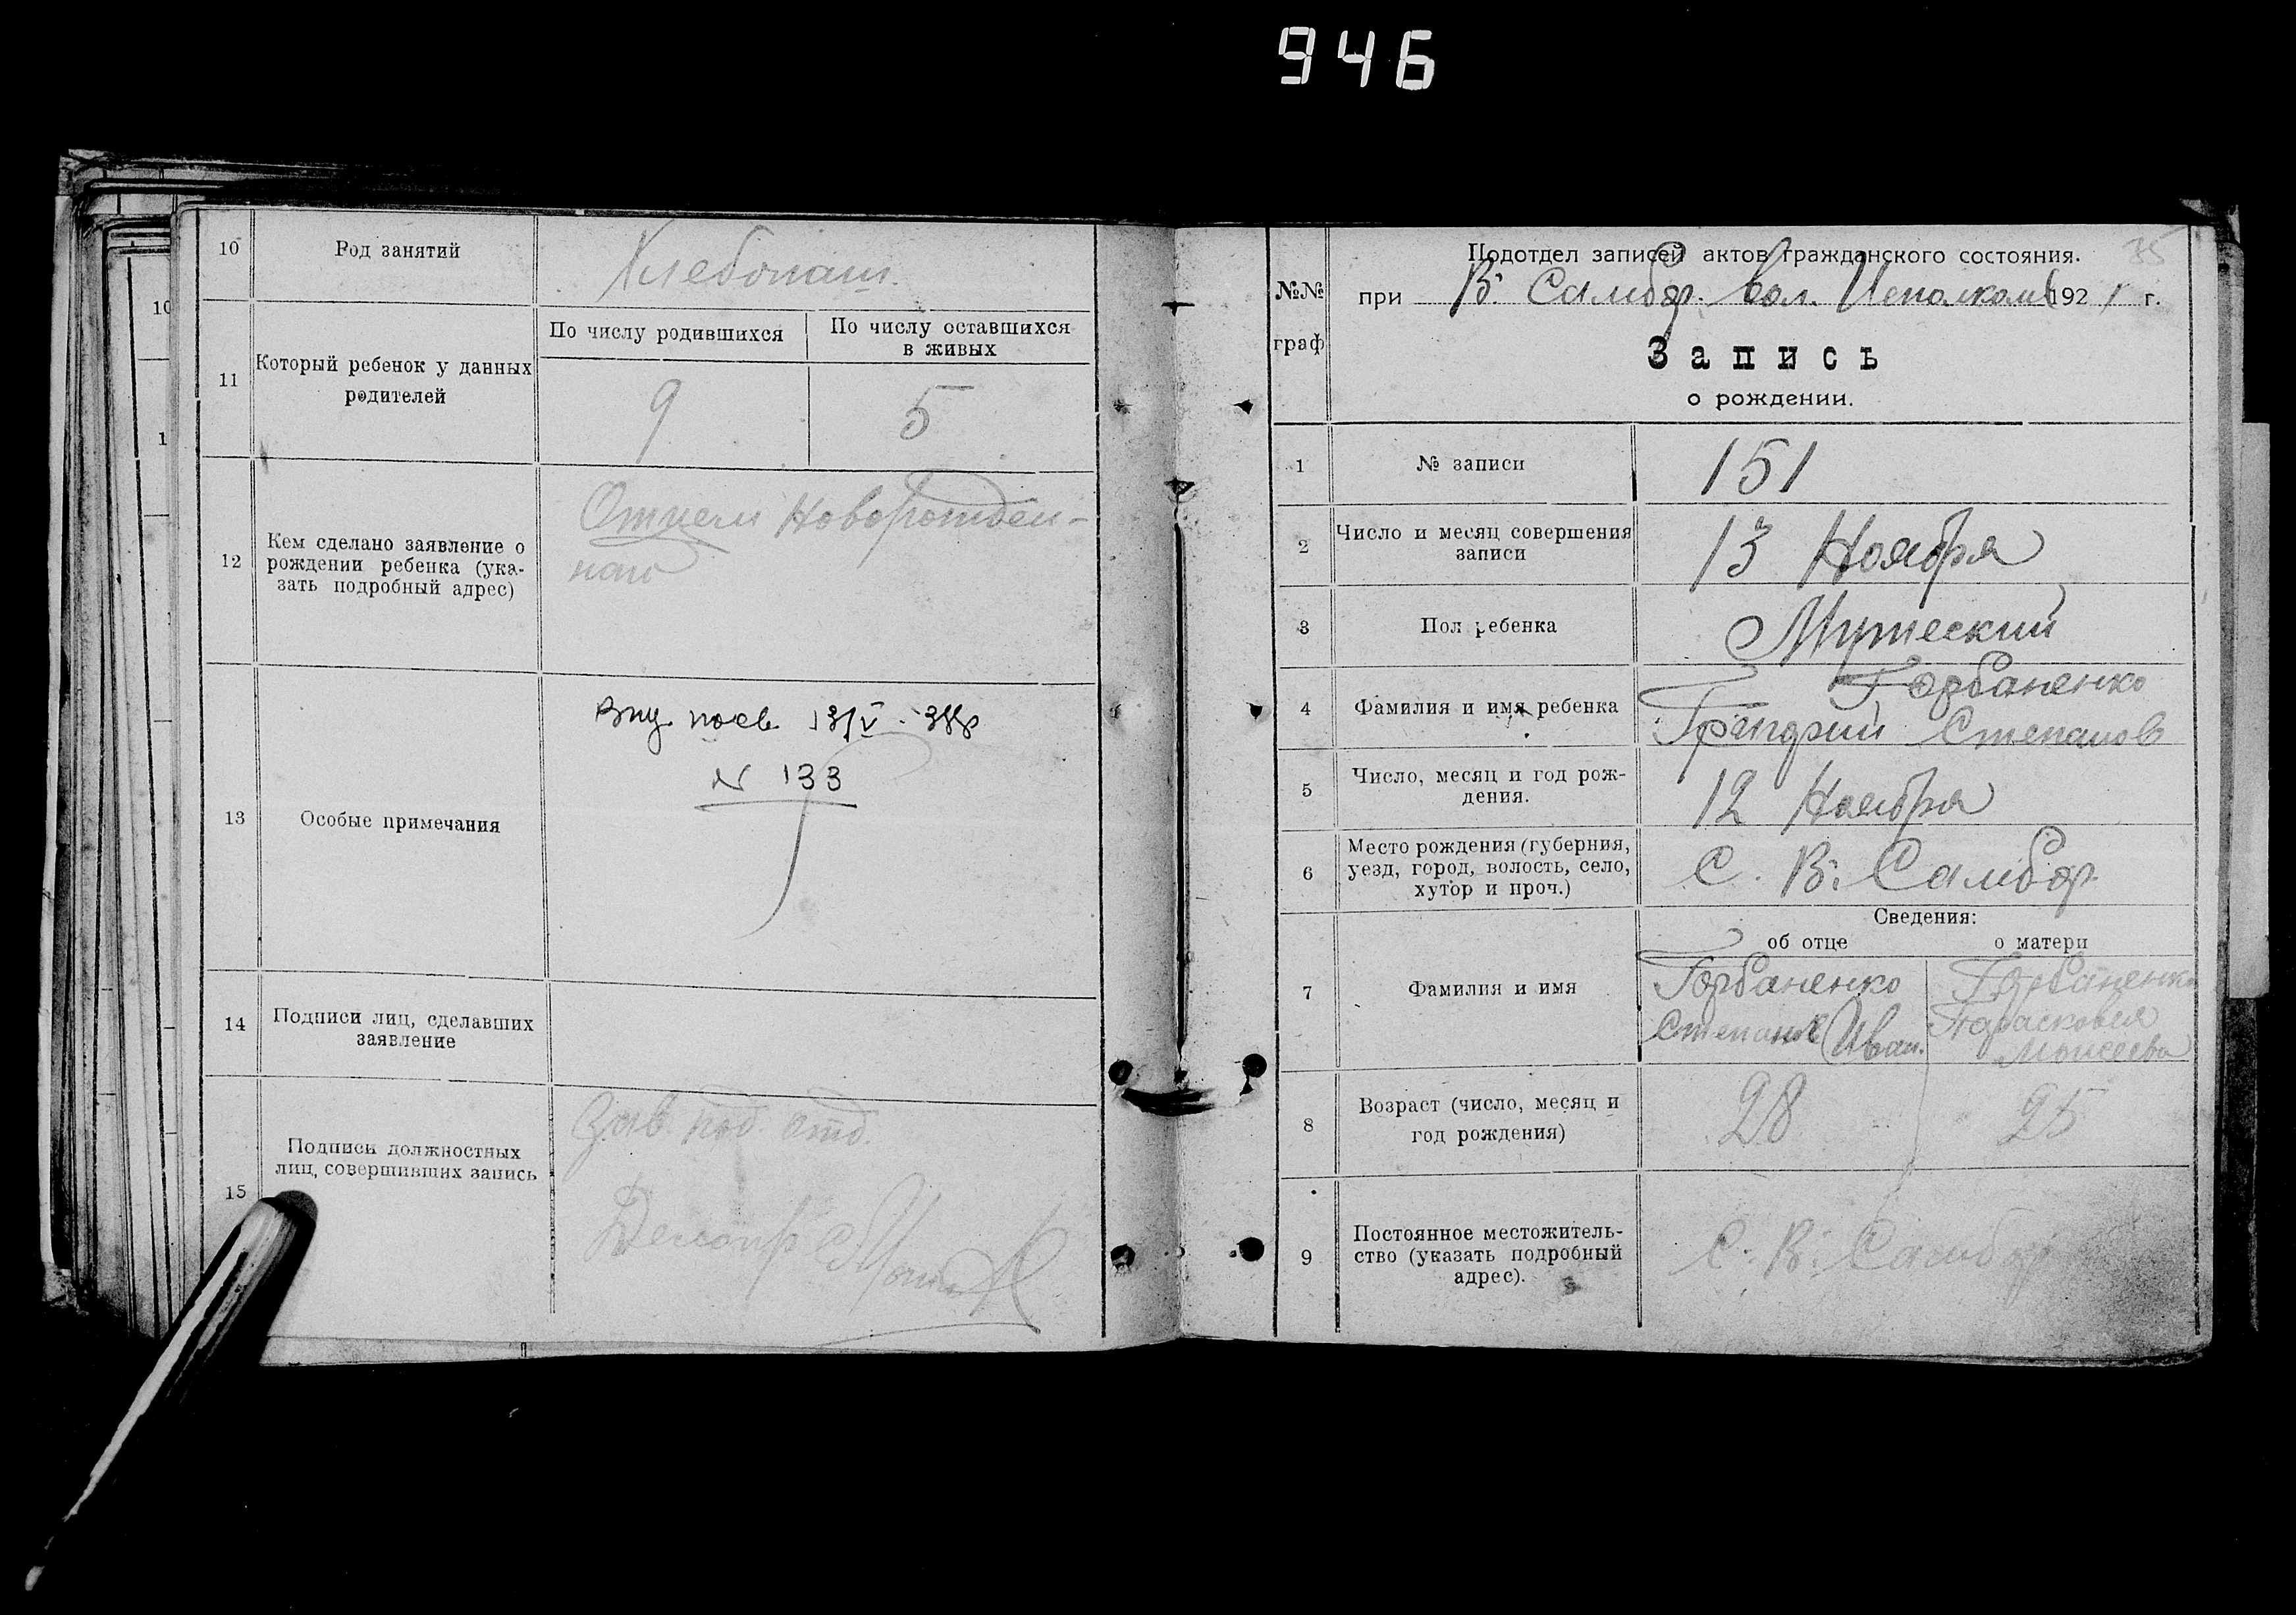 946
10
Род занятий
Хлебопаш.
11
Который ребенок у данных
родителей
По числу родившихся
По числу оставшихся
в живых
9
5
12
Кем сделано заявление о
рождении ребенка (ука-
зать подробный адрес)
Отцем Новорожден-
наго
13
Особые примечания
N 133
14
Подписи лиц, сделавших
заявление
15
Подписи должностных
лиц, совершивших запись
Зав. под отд.
10
1
35
№№
граф
Подотдел записей актов гражданского состояния.
при В. Самбор. Вол. Исполкоме 1921 г.
Запись
о рождении.
1
№ записи
151
2
Число и месяц совершения
записи
13 Ноября
3
Пол ребенка
Мужеский
4
Фамилия и имя ребенка
Горбаненко
Степанов
5
Число, месяц и год рож-
дения.
12 Ноября
6
Место рождения (губерния,
уезд, город, волость, село,
хутор и проч.)
С. В. Самбор
Сведения:
об отце
о матери
7
Фамилия и имя
Горбаненко
Степан Иван.
Горбаненко
Парасковея
Моисеева
8
Возраст (число, месяц и
год рождения)
28
25
9
Постоянное местожитель-
ство (указать подробный
адрес).
С. В. Самбор